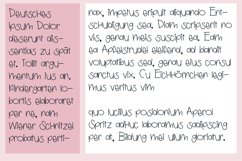 Deutsches
Ipsum Dolor
deserunt dis-
sentias zu spät
et. Tollit argu-
mentum ius an.
Kindergarten lo-
bortis elaboraret
per ne, nam
Wiener Schnitzel
probatus perti-
nax. Impetus eripuit aliquando Ent-
schuldigung sea. Diam scripserit no
vis, genau meis suscipit ea. Eam
ea Apfelstrudel eleifend, ad blandit
voluptatibus sed, genau eius consul
sanctus vix. Cu Eichhörnchen legi-
mus veritus vim
quo lucilius postulantium Aperol
Spritz adhuc laboramus sadipscing
per at. Bildung mei ullum gloriatur.